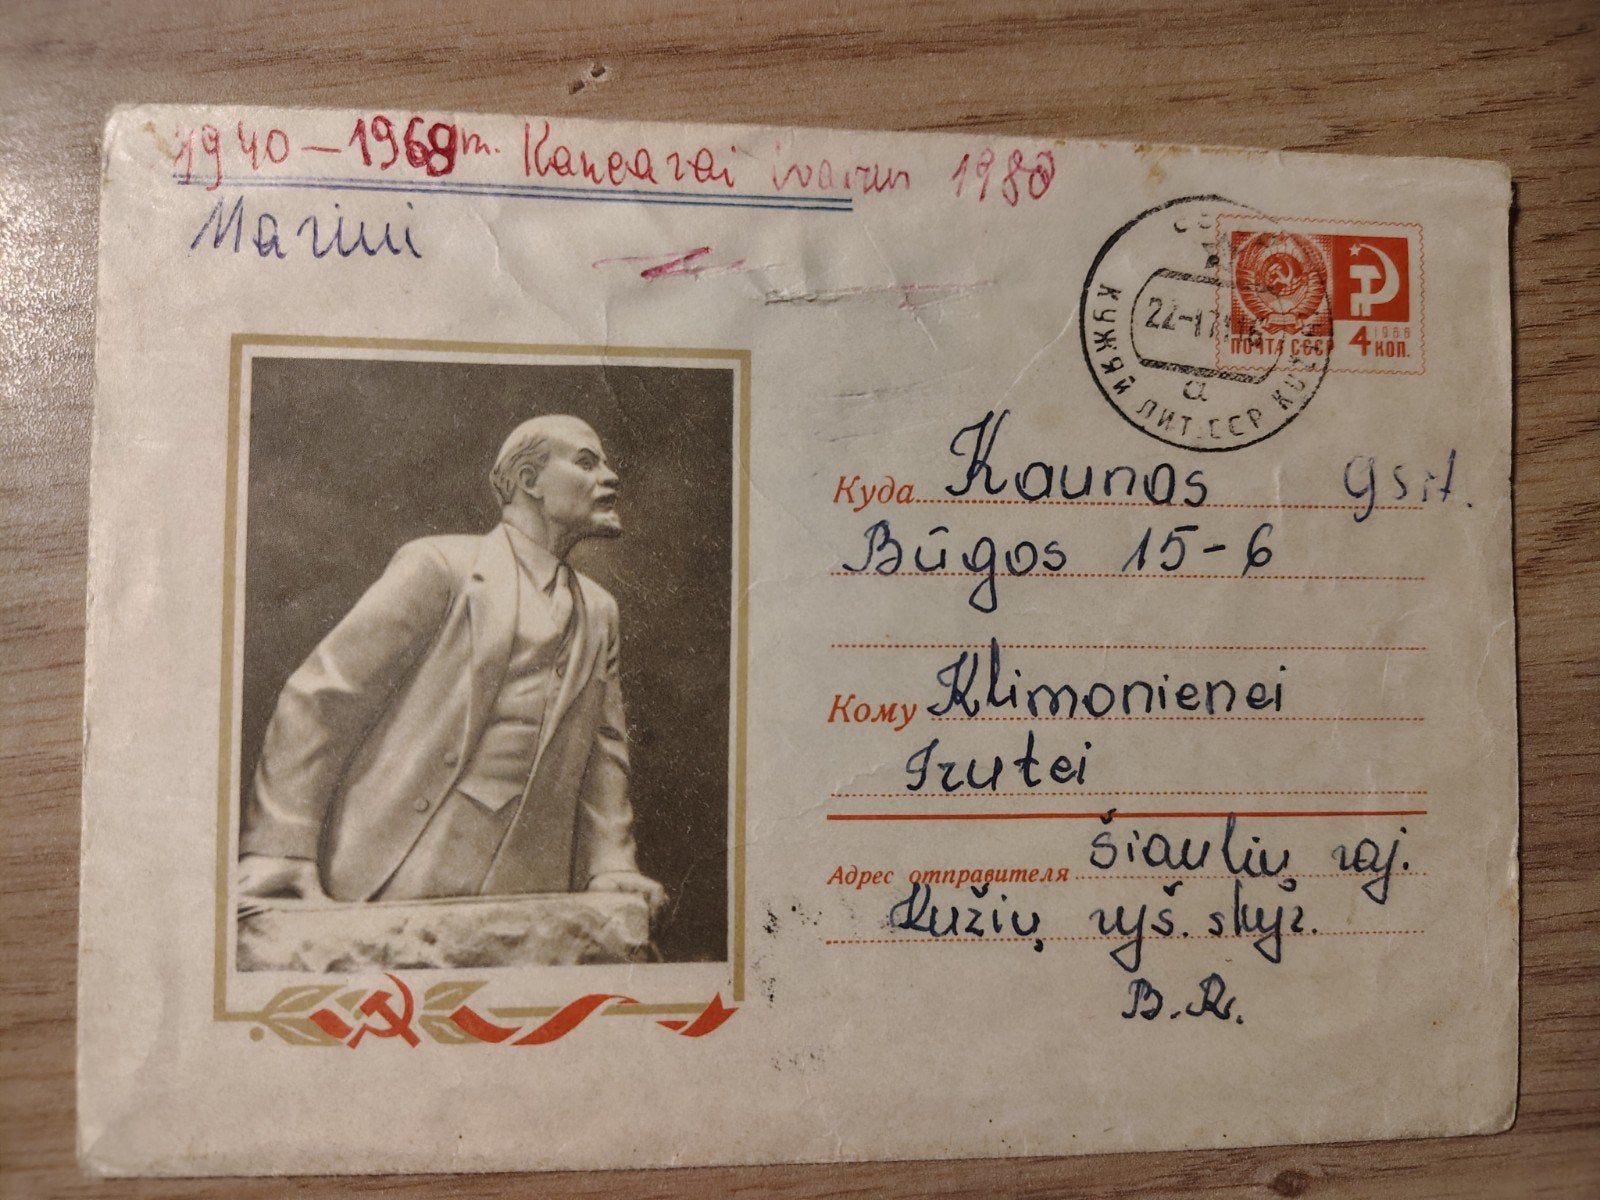 1940-1969m. Kancarai įvairus 1980
Mariui
КУЖЯЙ ЛИТ.ССР
а
1966
ПОЧТА СССР 4 КОП.
Куда Kaunas
Būgos 15-6
Кому Klimonienei
Irutei
Адрес отправителя Šiaulių raj.
Kužių ryš. skyr.
B.R.